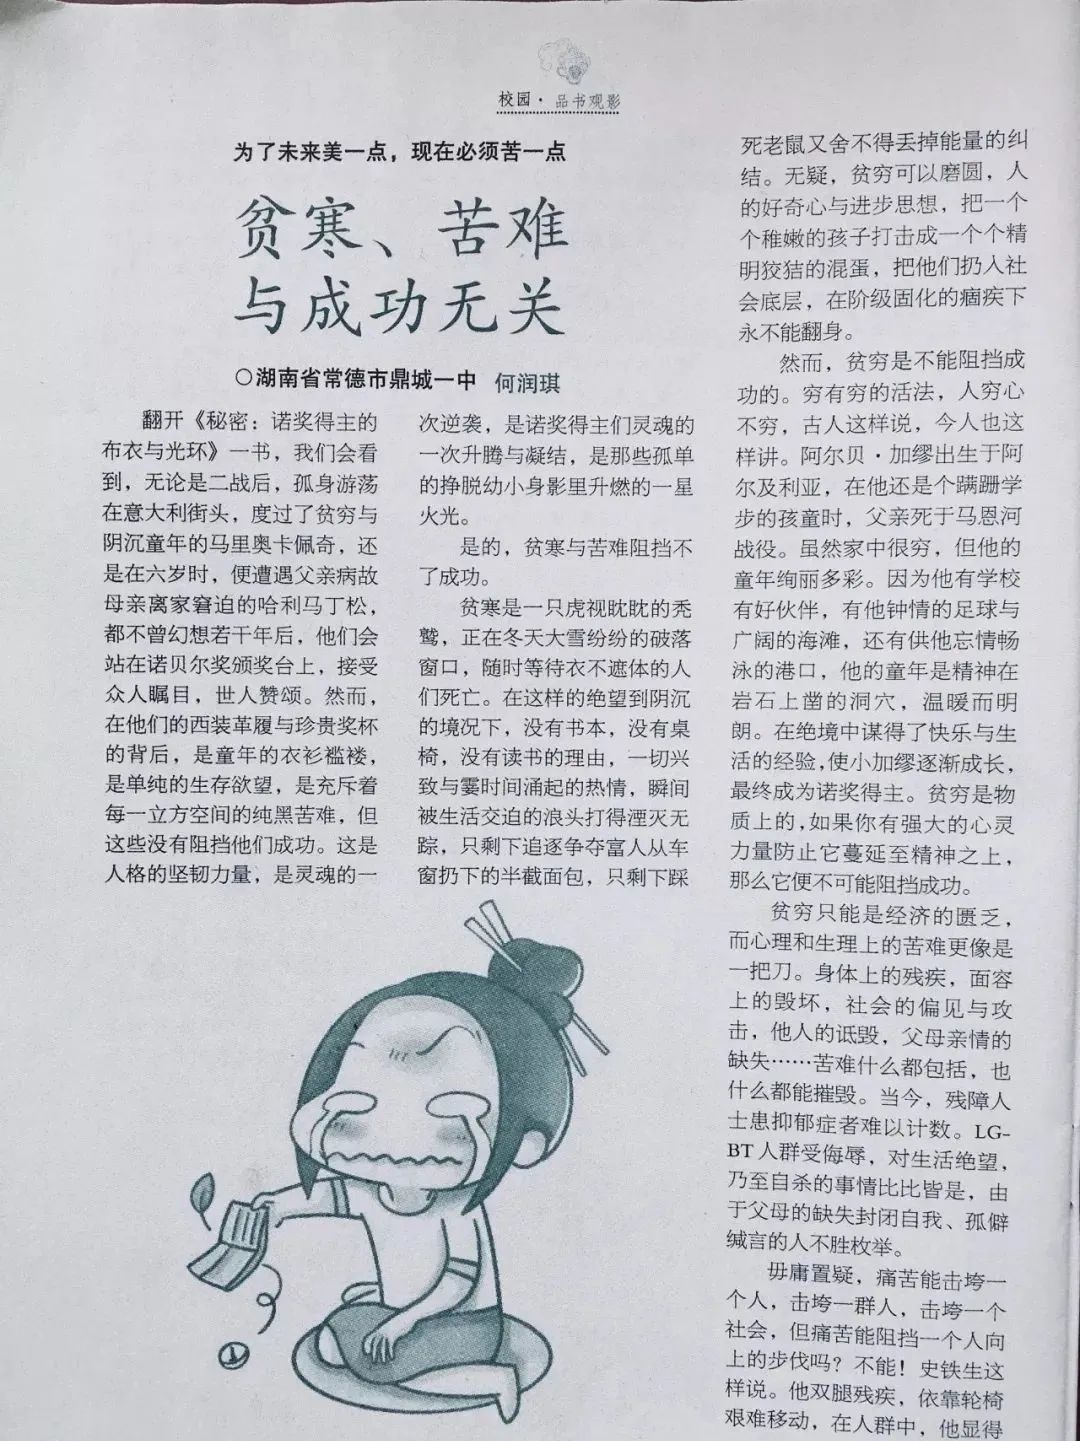 校园·品书观影
为了未来美一点，现在必须苦一点
贫寒、苦难
与成功无关
○湖南省常德市鼎城一中 何润琪
翻开《秘密：诺奖得主的
布衣与光环》一书，我们会看
到，无论是二战后，孤身游荡
在意大利街头，度过了贫穷与
阴沉童年的马里奥卡佩奇，还
是在六岁时，便遭遇父亲病故
母亲离家窘迫的哈利马丁松，
都不曾幻想若干年后，他们会
站在诺贝尔奖颁奖台上，接受
众人瞩目，世人赞颂。然而，
在他们的西装革履与珍贵奖杯
的背后，是童年的衣衫褴褛，
是单纯的生存欲望，是充斥着
每一立方空间的纯黑苦难，但
这些没有阻挡他们成功。这是
人格的坚韧力量，是灵魂的一
次逆袭，是诺奖得主们灵魂的
一次升腾与凝结，是那些孤单
的挣脱幼小身影里升燃的一星
火光。
是的，贫寒与苦难阻挡不
了成功。
贫寒是一只虎视眈眈的秃
鹫，正在冬天大雪纷纷的破落
窗口，随时等待衣不遮体的人
们死亡。在这样的绝望到阴沉
的境况下，没有书本，没有桌
椅，没有读书的理由，一切兴
致与霎时间涌起的热情，瞬间
被生活交迫的浪头打得湮灭无
踪，只剩下追逐争夺富人从车
窗扔下的半截面包，只剩下踩
死老鼠又舍不得丢掉能量的纠
结。无疑，贫穷可以磨圆，人
的好奇心与进步思想，把一个
个稚嫩的孩子打击成一个个精
明狡猾的混蛋，把他们扔入社
会底层，在阶级固化的痼疾下
永不能翻身。
然而，贫穷是不能阻挡成
功的。穷有穷的活法，人穷心
不穷，古人这样说，今人也这
样讲。阿尔贝·加缪出生于阿
尔及利亚，在他还是个蹒跚学
步的孩童时，父亲死于马恩河
战役。虽然家中很穷，但他的
童年绚丽多彩。因为他有学校
有好伙伴，有他钟情的足球与
广阔的海滩，还有供他忘情畅
泳的港口，他的童年是精神在
岩石上凿的洞穴，温暖而明
朗。在绝境中谋得了快乐与生
活的经验，使小加缪逐渐成长，
最终成为诺奖得主。贫穷是物
质上的，如果你有强大的心灵
力量防止它蔓延至精神之上，
那么它便不可能阻挡成功。
贫穷只能是经济的匮乏，
而心理和生理上的苦难更像是
一把刀。身体上的残疾，面容
上的毁坏，社会的偏见与攻
击，他人的诋毁，父母亲情的
缺失……苦难什么都包括，也
什么都能摧毁。当今，残障人
士患抑郁症者难以计数。LG-
BT人群受侮辱，对生活绝望，
乃至自杀的事情比比皆是，由
于父母的缺失封闭自我、孤僻
缄言的人不胜枚举。
毋庸置疑，痛苦能击垮一
个人，击垮一群人，击垮一个
社会，但痛苦能阻挡一个人向
上的步伐吗？不能！史铁生这
样说。他双腿残疾，依靠轮椅
艰难移动，在人群中，他显得